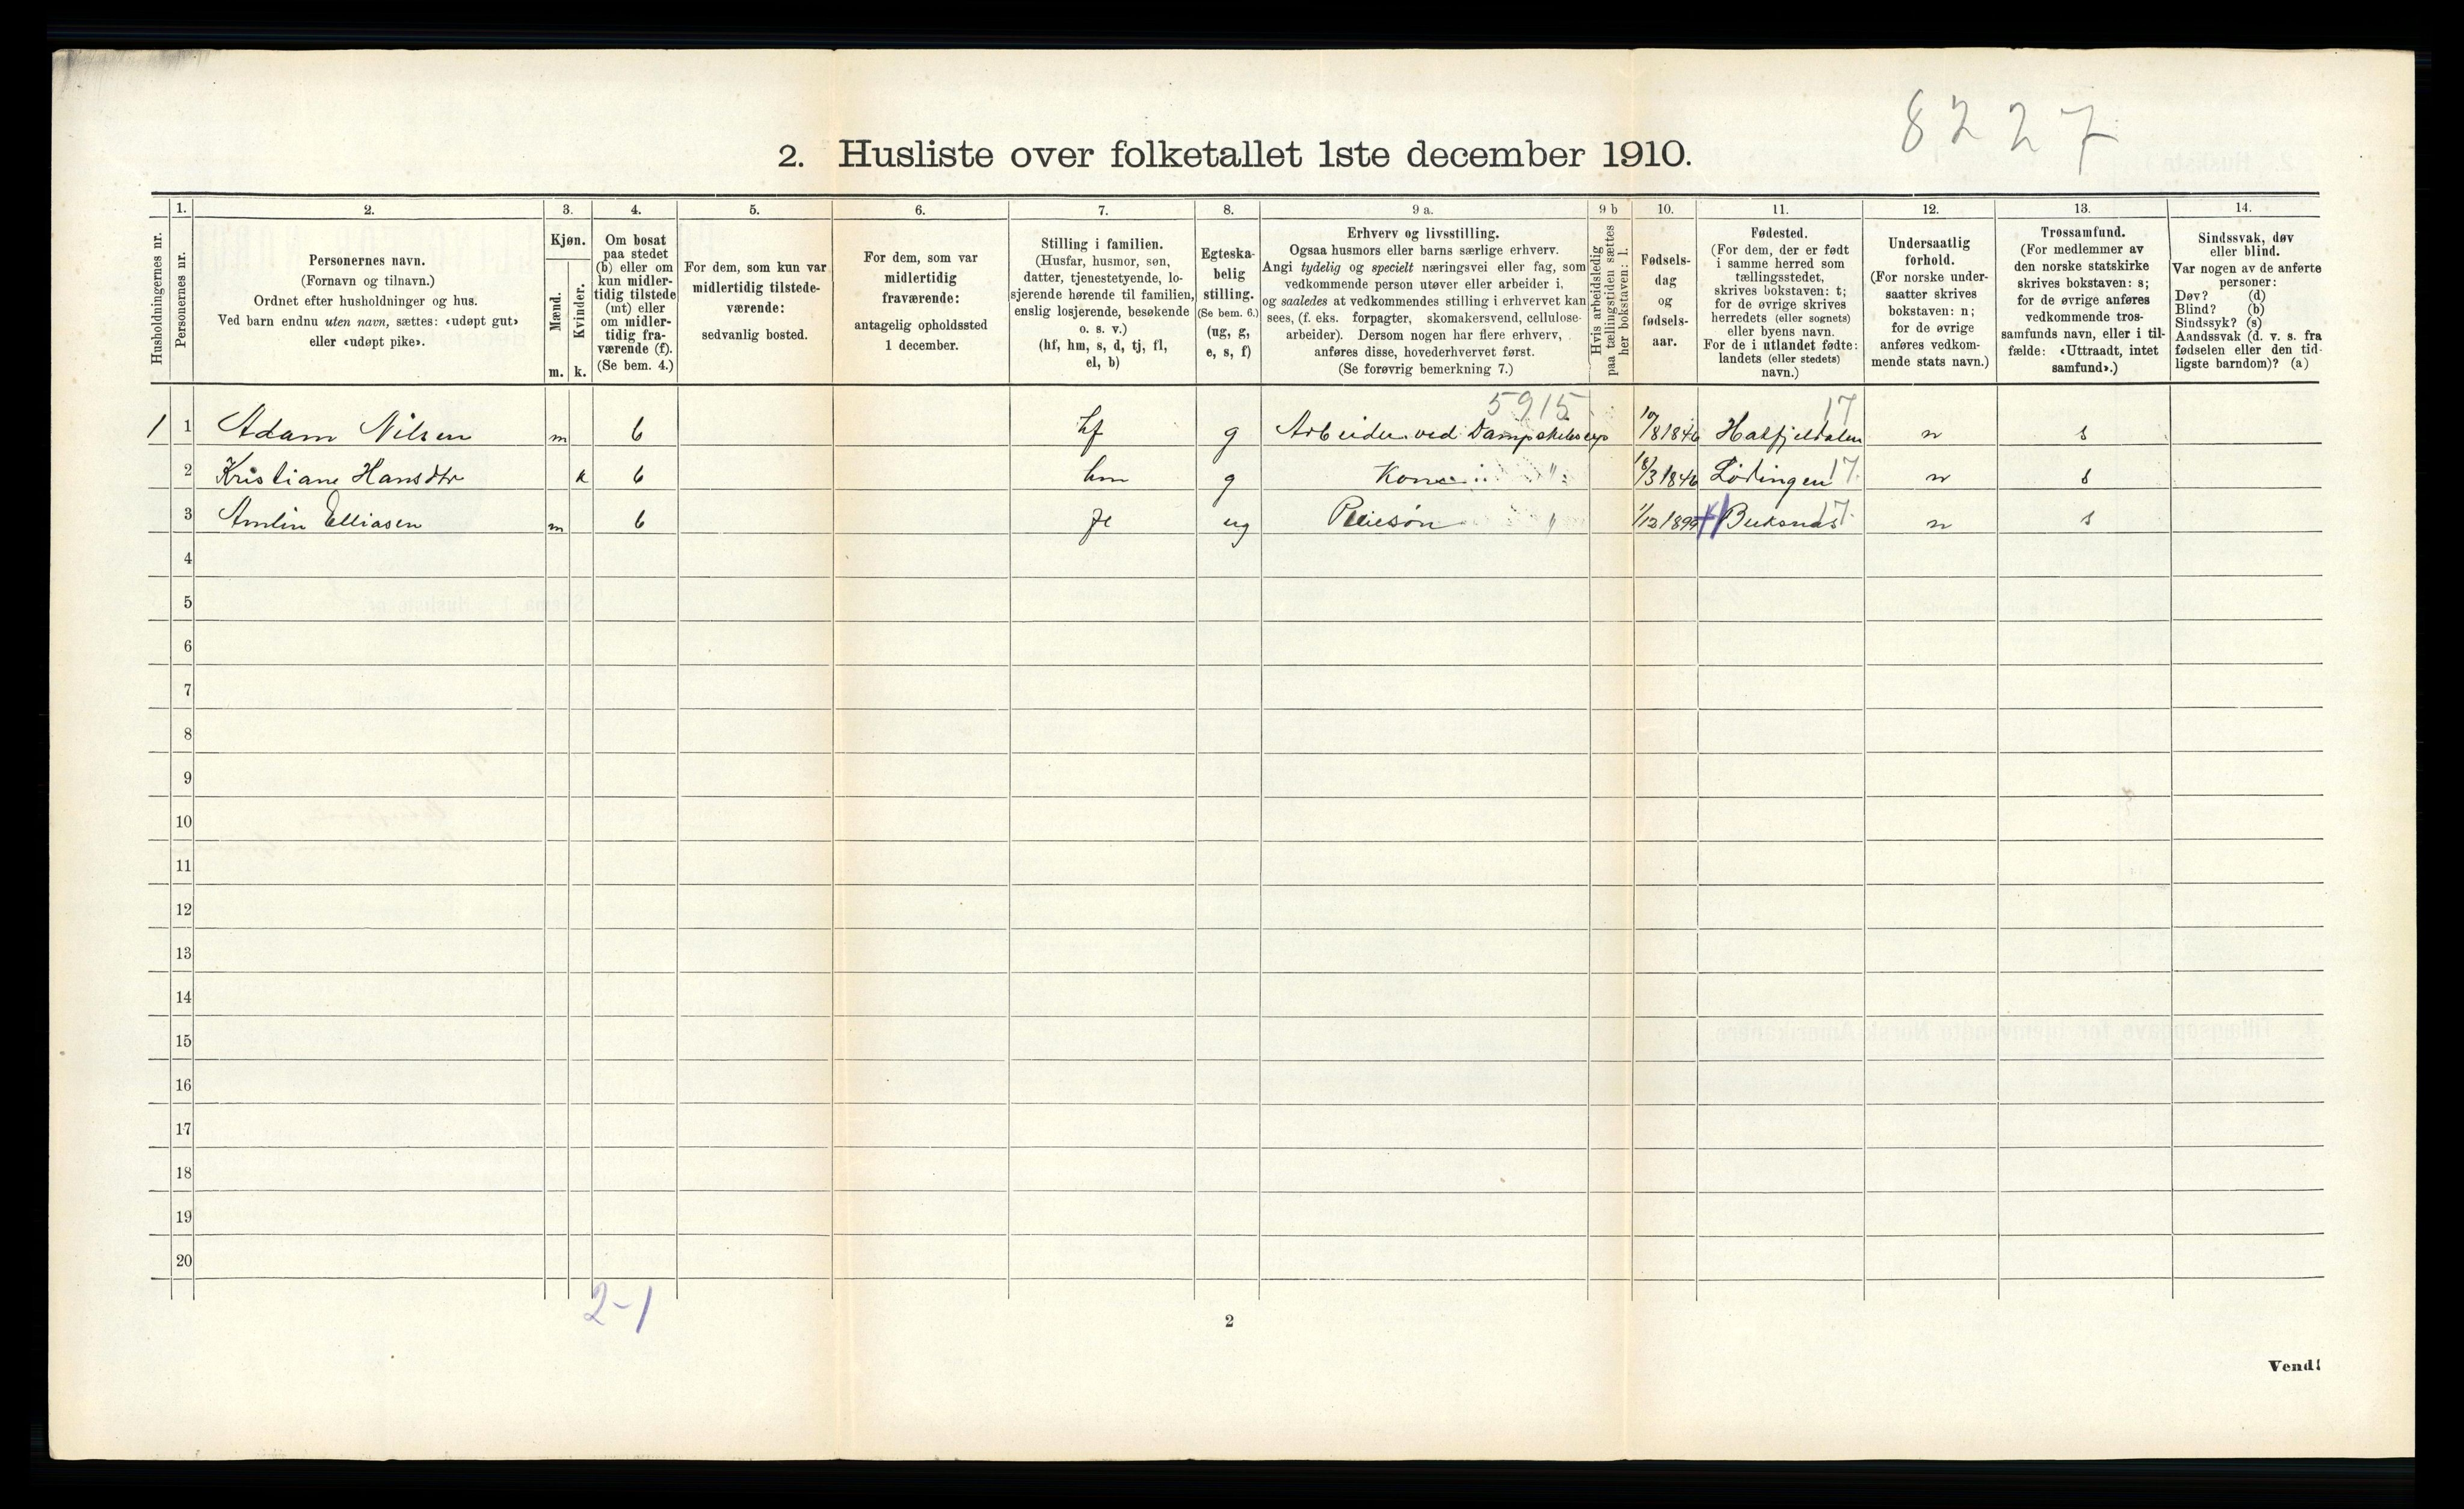 8227
2. Husliste over folketallet 1ste december 1910.
Husholdningernes nr.
1.
Personernes nr.
2.
Personernes navn.
(Fornavn og tilnavn.)
Ordnet efter husholdninger og hus.
Ved barn endnu uten navn, sættes: «udøpt gut»
eller «udøpt pike».
3.
Kjøn.
Mænd.
Kvinder.
m. k.
4.
Om bosat
paa stedet
(b) eller om
kun midler-
tidig tilstede
(mt) eller
om midler-
tidig fra-
værende (f).
(Se bem. 4.)
5.
For dem, som kun var
midlertidig tilstede-
værende:
sedvanlig bosted.
6.
For dem, som var
midlertidig
fraværende:
antagelig opholdssted
1 december.
7.
Stilling i familien.
(Husfar, husmor, søn,
datter, tjenestetyende, lo-
sjerende hørende til familien,
enslig losjerende, besøkende
o. s. v.)
(hf, hm, s, d, tj, fl,
el, b)
8.
Egteska-
belig
stilling.
(Se bem. 6.)
(ug, g,
e, s, f)
9 a.
Erhverv og livsstilling.
Ogsaa husmors eller barns særlige erhverv.
Angi tydelig og specielt næringsvei eller fag, som
vedkommende person utøver eller arbeider i,
og saaledes at vedkommendes stilling i erhvervet kan
sees, (f. eks. forpagter, skomakersvend, cellulose-
arbeider). Dersom nogen har flere erhverv,
anføres disse, hovederhvervet først.
(Se forøvrig bemerkning 7.)
9 b
Hvis arbeidsledig
paa tællingstiden sættes
her bokstaven: l.
10.
Fødsels-
dag
og
fødsels-
aar.
11.
Fødested.
(For dem, der er født
i samme herred som
tællingsstedet,
skrives bokstaven: t;
for de øvrige skrives
herredets (eller sognets)
eller byens navn.
For de i utlandet fødte:
landets (eller stedets)
navn.)
12.
Undersaatlig
forhold.
(For norske under-
saatter skrives
bokstaven: n;
for de øvrige
anføres vedkom-
mende stats navn.)
13.
Trossamfund.
(For medlemmer av
den norske statskirke
skrives bokstaven: s;
for de øvrige anføres
vedkommende tros-
samfunds navn, eller i til-
fælde: «Uttraadt, intet
samfund».)
14.
Sindssvak, døv
eller blind.
Var nogen av de anførte
personer:
Døv? (d)
Blind? (b)
Sindssyk? (s)
Aandssvak (d. v. s. fra
fødselen eller den tid-
ligste barndom)? (a)
5915 17
1 1 Adam Nilsen m b hf g Arbeider ved 8 1846 Hatfjeldalen n s
2 Kristiane Hansdtr k b hm g Kone " 18/3 1846 Lødingen 17 n s
3 Elliasen m b fl ug Pleiesøn " 1/12 1899 Buksnes 17 n s
4
5
6
7
8
9
10
11
12
13
14
15
16
17
18
19
20
2-1
2
Vend!